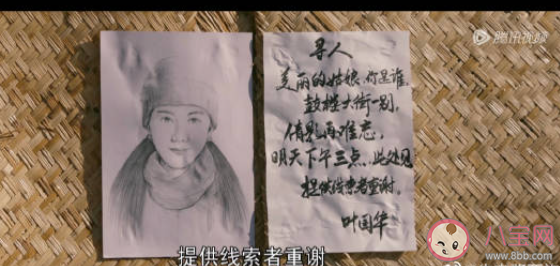 腾讯视频
寻人
美丽的姑娘,你是谁,
鼓楼大街一别,
倩影再难忘,
明天下午三点,此处见
提供线索者重谢。
叶国华
提供线索者重谢
八宝网
www.8bb.com